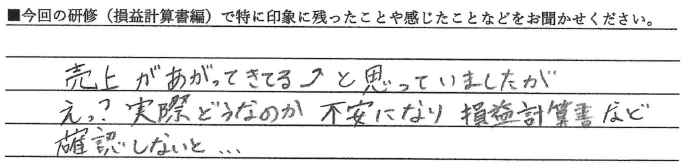 ■今回の研修（損益計算書編）で特に印象に残ったことや感じたことなどをお聞かせください。
売上があがってきてる⤴と思っていましたが
えっ?実際どうなのか 不安になり 損益計算書など
確認しないと…